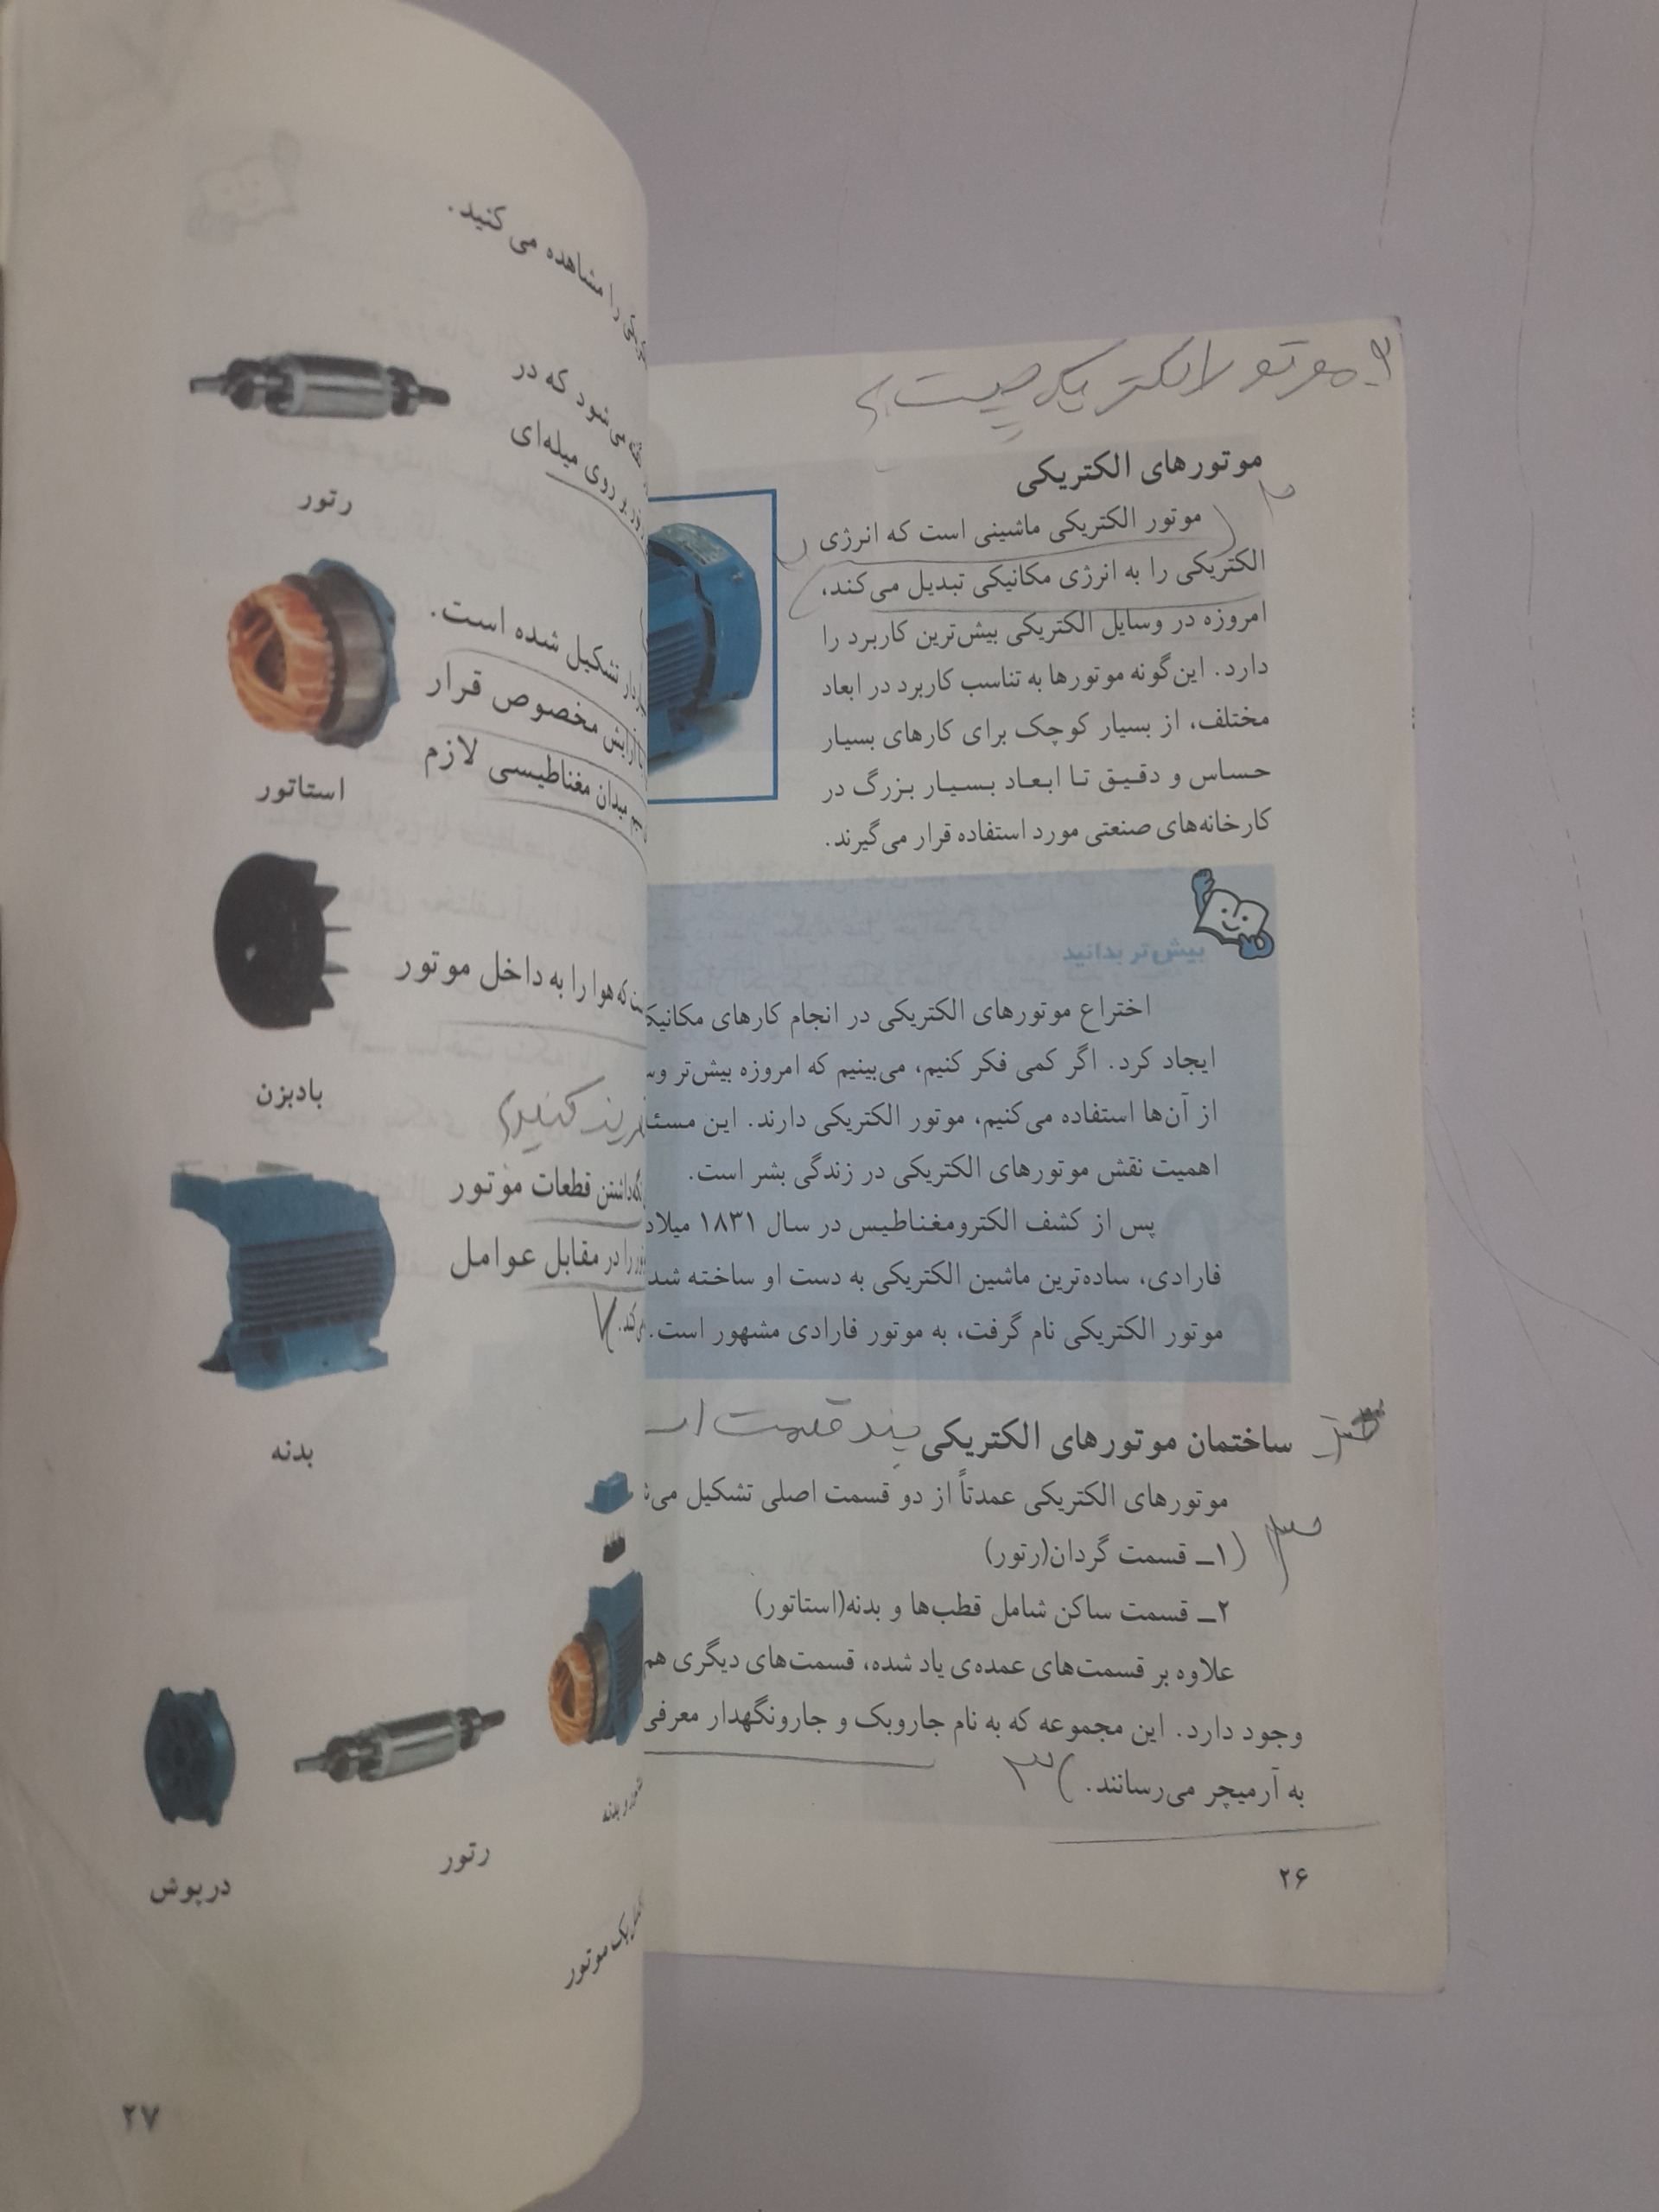 ۲ـ موتور الکتریکی چیست؟
موتورهای الکتریکی
موتور الکتریکی ماشینی است که انرژی
الکتریکی را به انرژی مکانیکی تبدیل می‌کند،
امروزه در وسایل الکتریکی بیش‌ترین کاربرد را
دارد. این‌گونه موتورها به تناسب کاربرد در ابعاد
مختلف، از بسیار کوچک برای کارهای بسیار
حساس و دقیق تا ابعاد بسیار بزرگ در
کارخانه‌های صنعتی مورد استفاده قرار می‌گیرند.
بیش‌تر بدانید
اختراع موتورهای الکتریکی در انجام کارهای
ایجاد کرد. اگر کمی فکر کنیم، می‌بینیم که امروزه بیش‌تر
از آن‌ها استفاده می‌کنیم، موتور الکتریکی دارند. این
اهمیت نقش موتورهای الکتریکی در زندگی بشر است.
پس از کشف الکترومغناطیس در سال ۱۸۳۱
فارادی، ساده‌ترین ماشین الکتریکی به دست او ساخته
موتور الکتریکی نام گرفت، به موتور فارادی مشهور است.
ساختمان موتورهای الکتریکی
موتورهای الکتریکی عمدتاً از دو قسمت اصلی تشکیل
۱ـ قسمت گردان(رتور)
۳
۲ـ قسمت ساکن شامل قطب‌ها و بدنه(استاتور)
علاوه بر قسمت‌های عمده‌ی یاد شده، قسمت‌های دیگری هم
وجود دارد. این مجموعه که به نام جاروبک و جارونگهدار معرفی
به آرمیچر می‌رسانند.
۳
۲۶
را مشاهده می‌کنید.
می‌شود که در
بر روی میله‌ای
رتور
تشکیل شده است.
مخصوص قرار
میدان مغناطیسی لازم
استاتور
که هوا را به داخل موتور
بادبزن
کنید
قطعات موتور
را در مقابل عوامل
بدنه
و بدنه
رتور
درپوش
موتور
۲۷